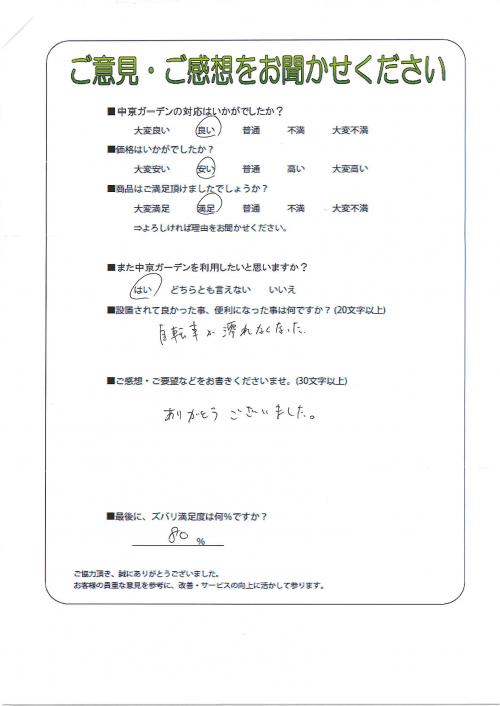 ご意見・ご感想をお聞かせください
■中京ガーデンの対応はいかがでしたか？
大変良い 良い 普通 不満 大変不満
■価格はいかがでしたか？
大変安い 安い 普通 高い 大変高い
■商品はご満足頂けましたでしょうか？
大変満足 満足 普通 不満 大変不満
⇒よろしければ理由をお聞かせください。
■また中京ガーデンを利用したいと思いますか？
はい どちらとも言えない いいえ
■設置されて良かった事、便利になった事は何ですか？(20文字以上)
自転車が濡れなくなった.
■ご感想・ご要望などをお書きくださいませ。(30文字以上)
ありがとうございました。
■最後に、ズバリ満足度は何％ですか？
80 %
ご協力頂き、誠にありがとうございました。
お客様の貴重な意見を参考に、改善・サービスの向上に活かして参ります。